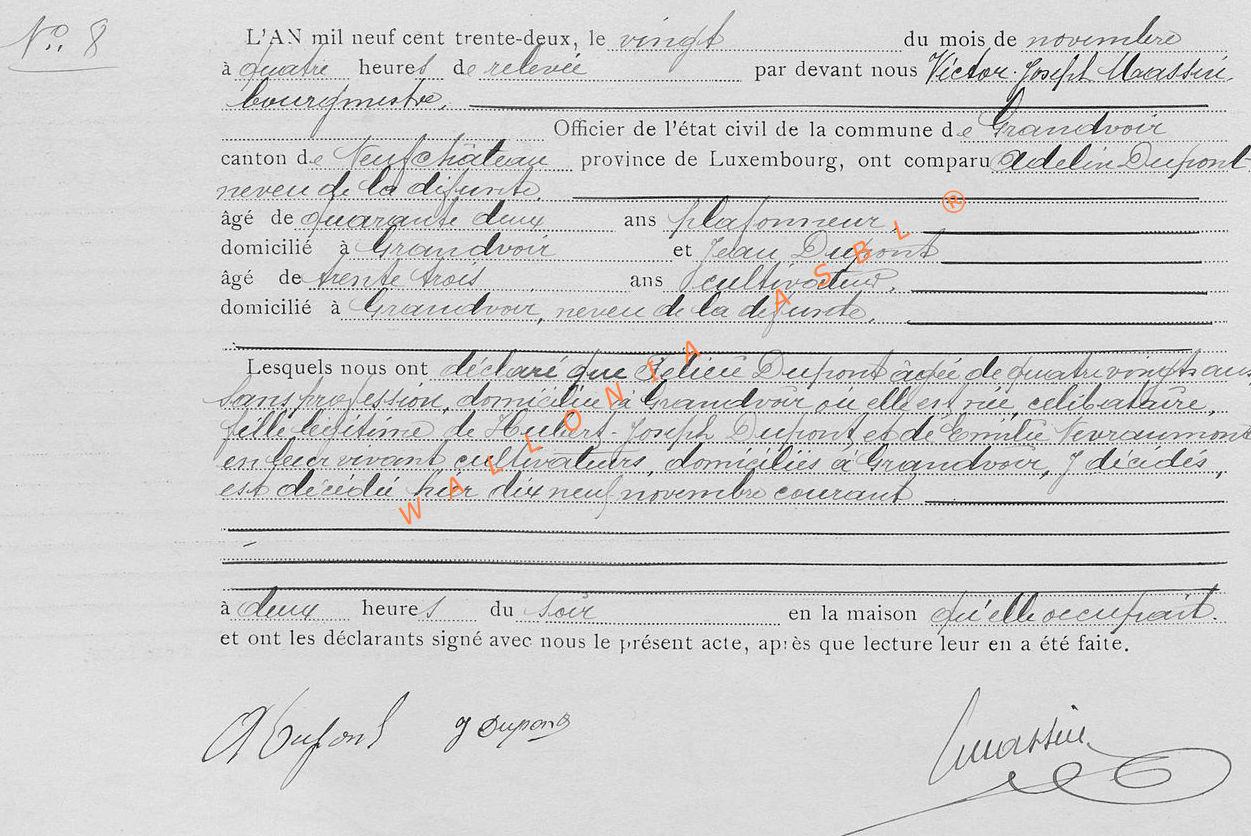 N° 8
L'AN mil neuf cent trente-deux, le vingt du mois de novembre
à quatre heures de relevée par devant nous Victor-Joseph Maassin
bourgmestre.
Officier de l'état civil de la commune de Grandvoir
canton de Neufchâteau province de Luxembourg, ont comparu Adelin Dupont
neveu de la défunte,
âgé de quarante deux ans plafonneur,
domicilié à Grandvoir et Jean Dupont
âgé de trente trois ans cultivateur,
domicilié à Grandvoir, neveu de la défunte,
Lesquels nous ont déclaré que Félicie Dupont âgée de quatre vingts ans
sans profession, domiciliée à Grandvoir où elle est née, célibataire,
fille légitime de Hubert-Joseph Dupont et de Emilie Nevraumont
en leur vivant cultivateurs, domiciliés à Grandvoir, y décédés,
est décédée hier dix neuf novembre courant
à deux heures du soir en la maison qu'elle occupait.
et ont les déclarants signé avec nous le présent acte, après que lecture leur en a été faite.
A Dupont J Dupont Maassin
WALLONIA ASBL ®